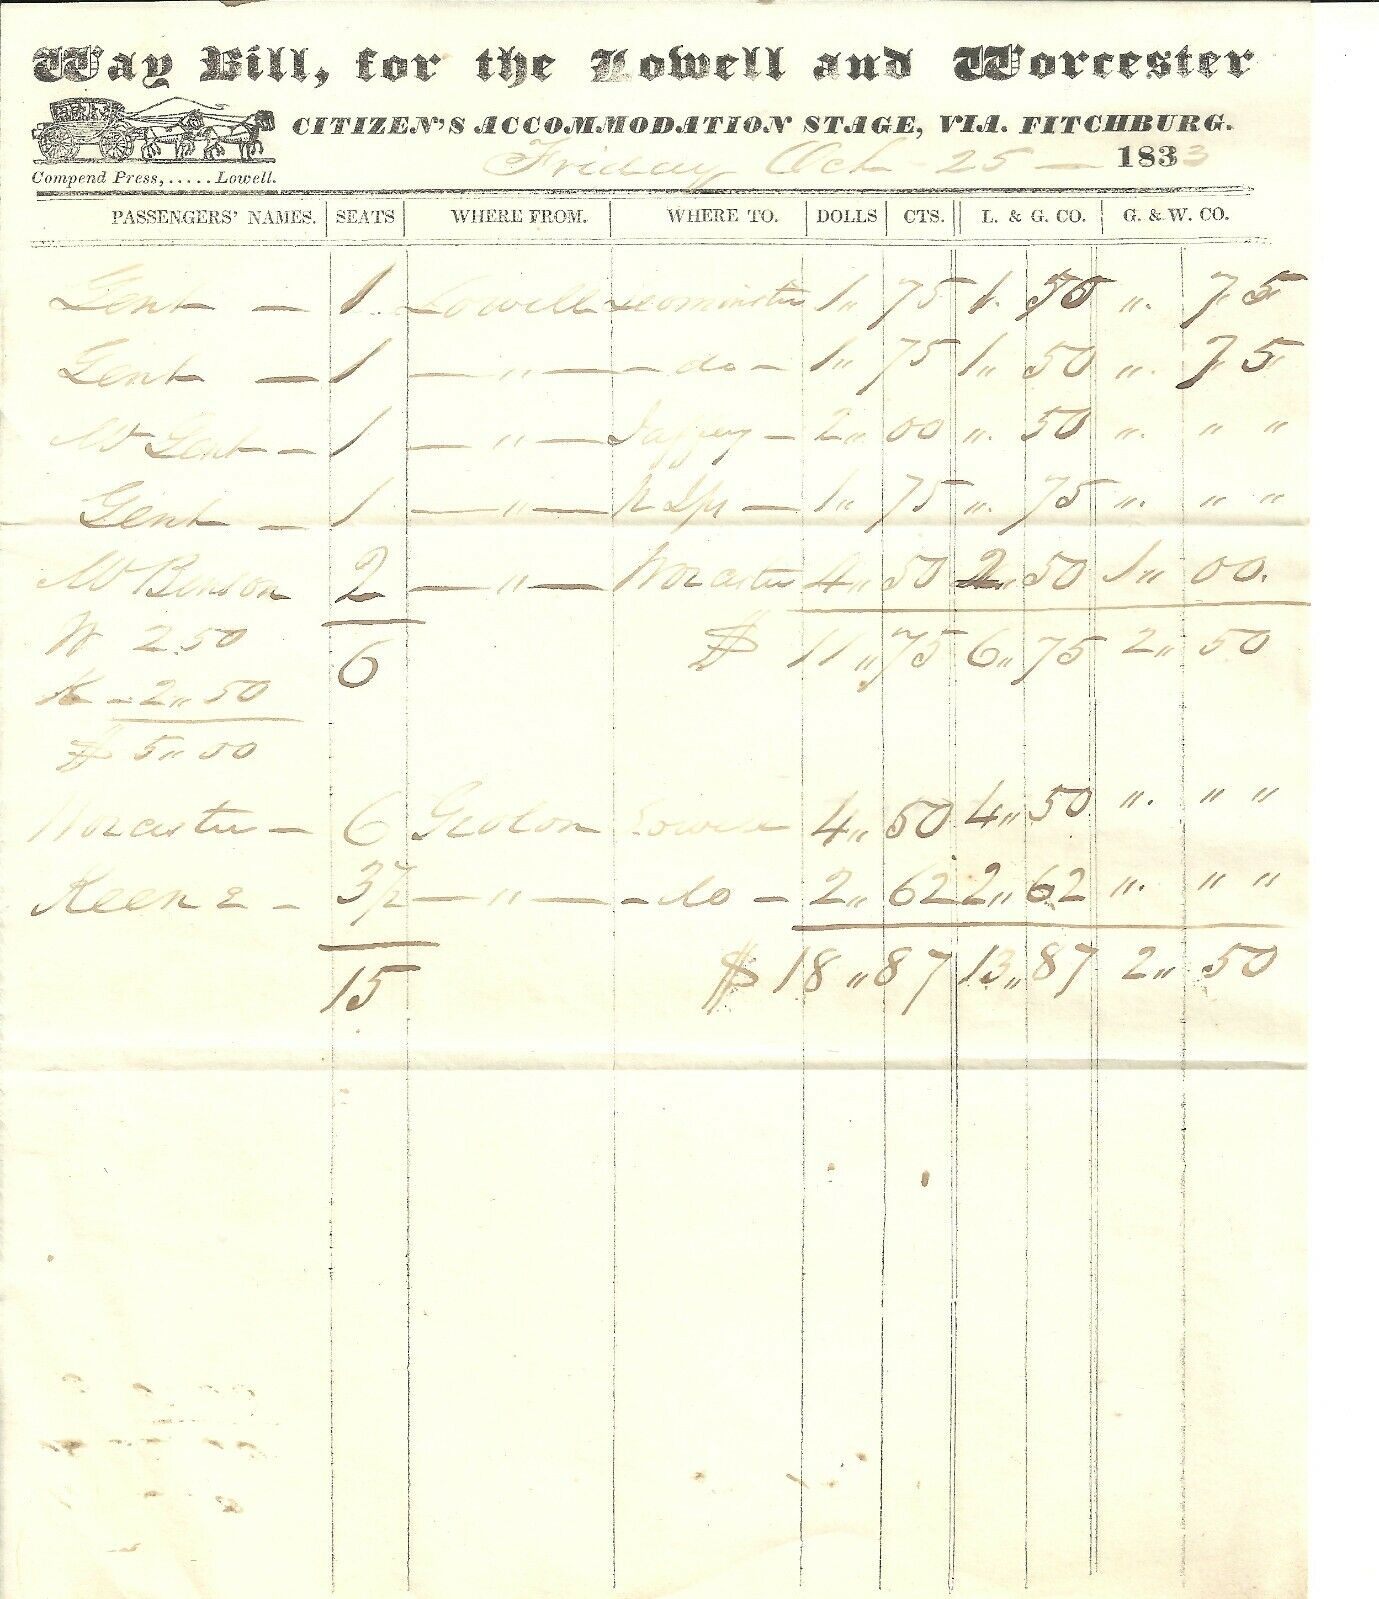 Way Bill, for the Lowell and Worcester
CITIZEN'S ACCOMMODATION STAGE, VIA. FITCHBURG.
Compend Press,.....Lowell.
Friday Oct 25 — 1833
PASSENGERS' NAMES. SEATS WHERE FROM. WHERE TO. DOLLS CTS. L. & G. CO. G. & W. CO.
Gent — 1 Lowell Leominster 1 " 75 1 " 50 " 75
Gent — 1 — " — - do - 1 " 75 1 " 50 " 75
Gent — 1 — " — Jaffrey — 2 " 00 " 50 " " "
Gent — 1 — " — 1 " 75 " 75 " " "
Mr Benson 2 — " — Worcester 4 " 50 2 " 50 1 " 00.
W 2.50 6 $ 11 " 75 6 " 75 2 " 50
K - 2 " 50
$ 5 " 00
Worcester — 6 Groton Lowell 4 " 50 4 " 50 " " "
Keene - 3½ — " — - do - 2 " 62 2 " 62 " " "
15 $ 18 " 87 13 " 87 2 " 50